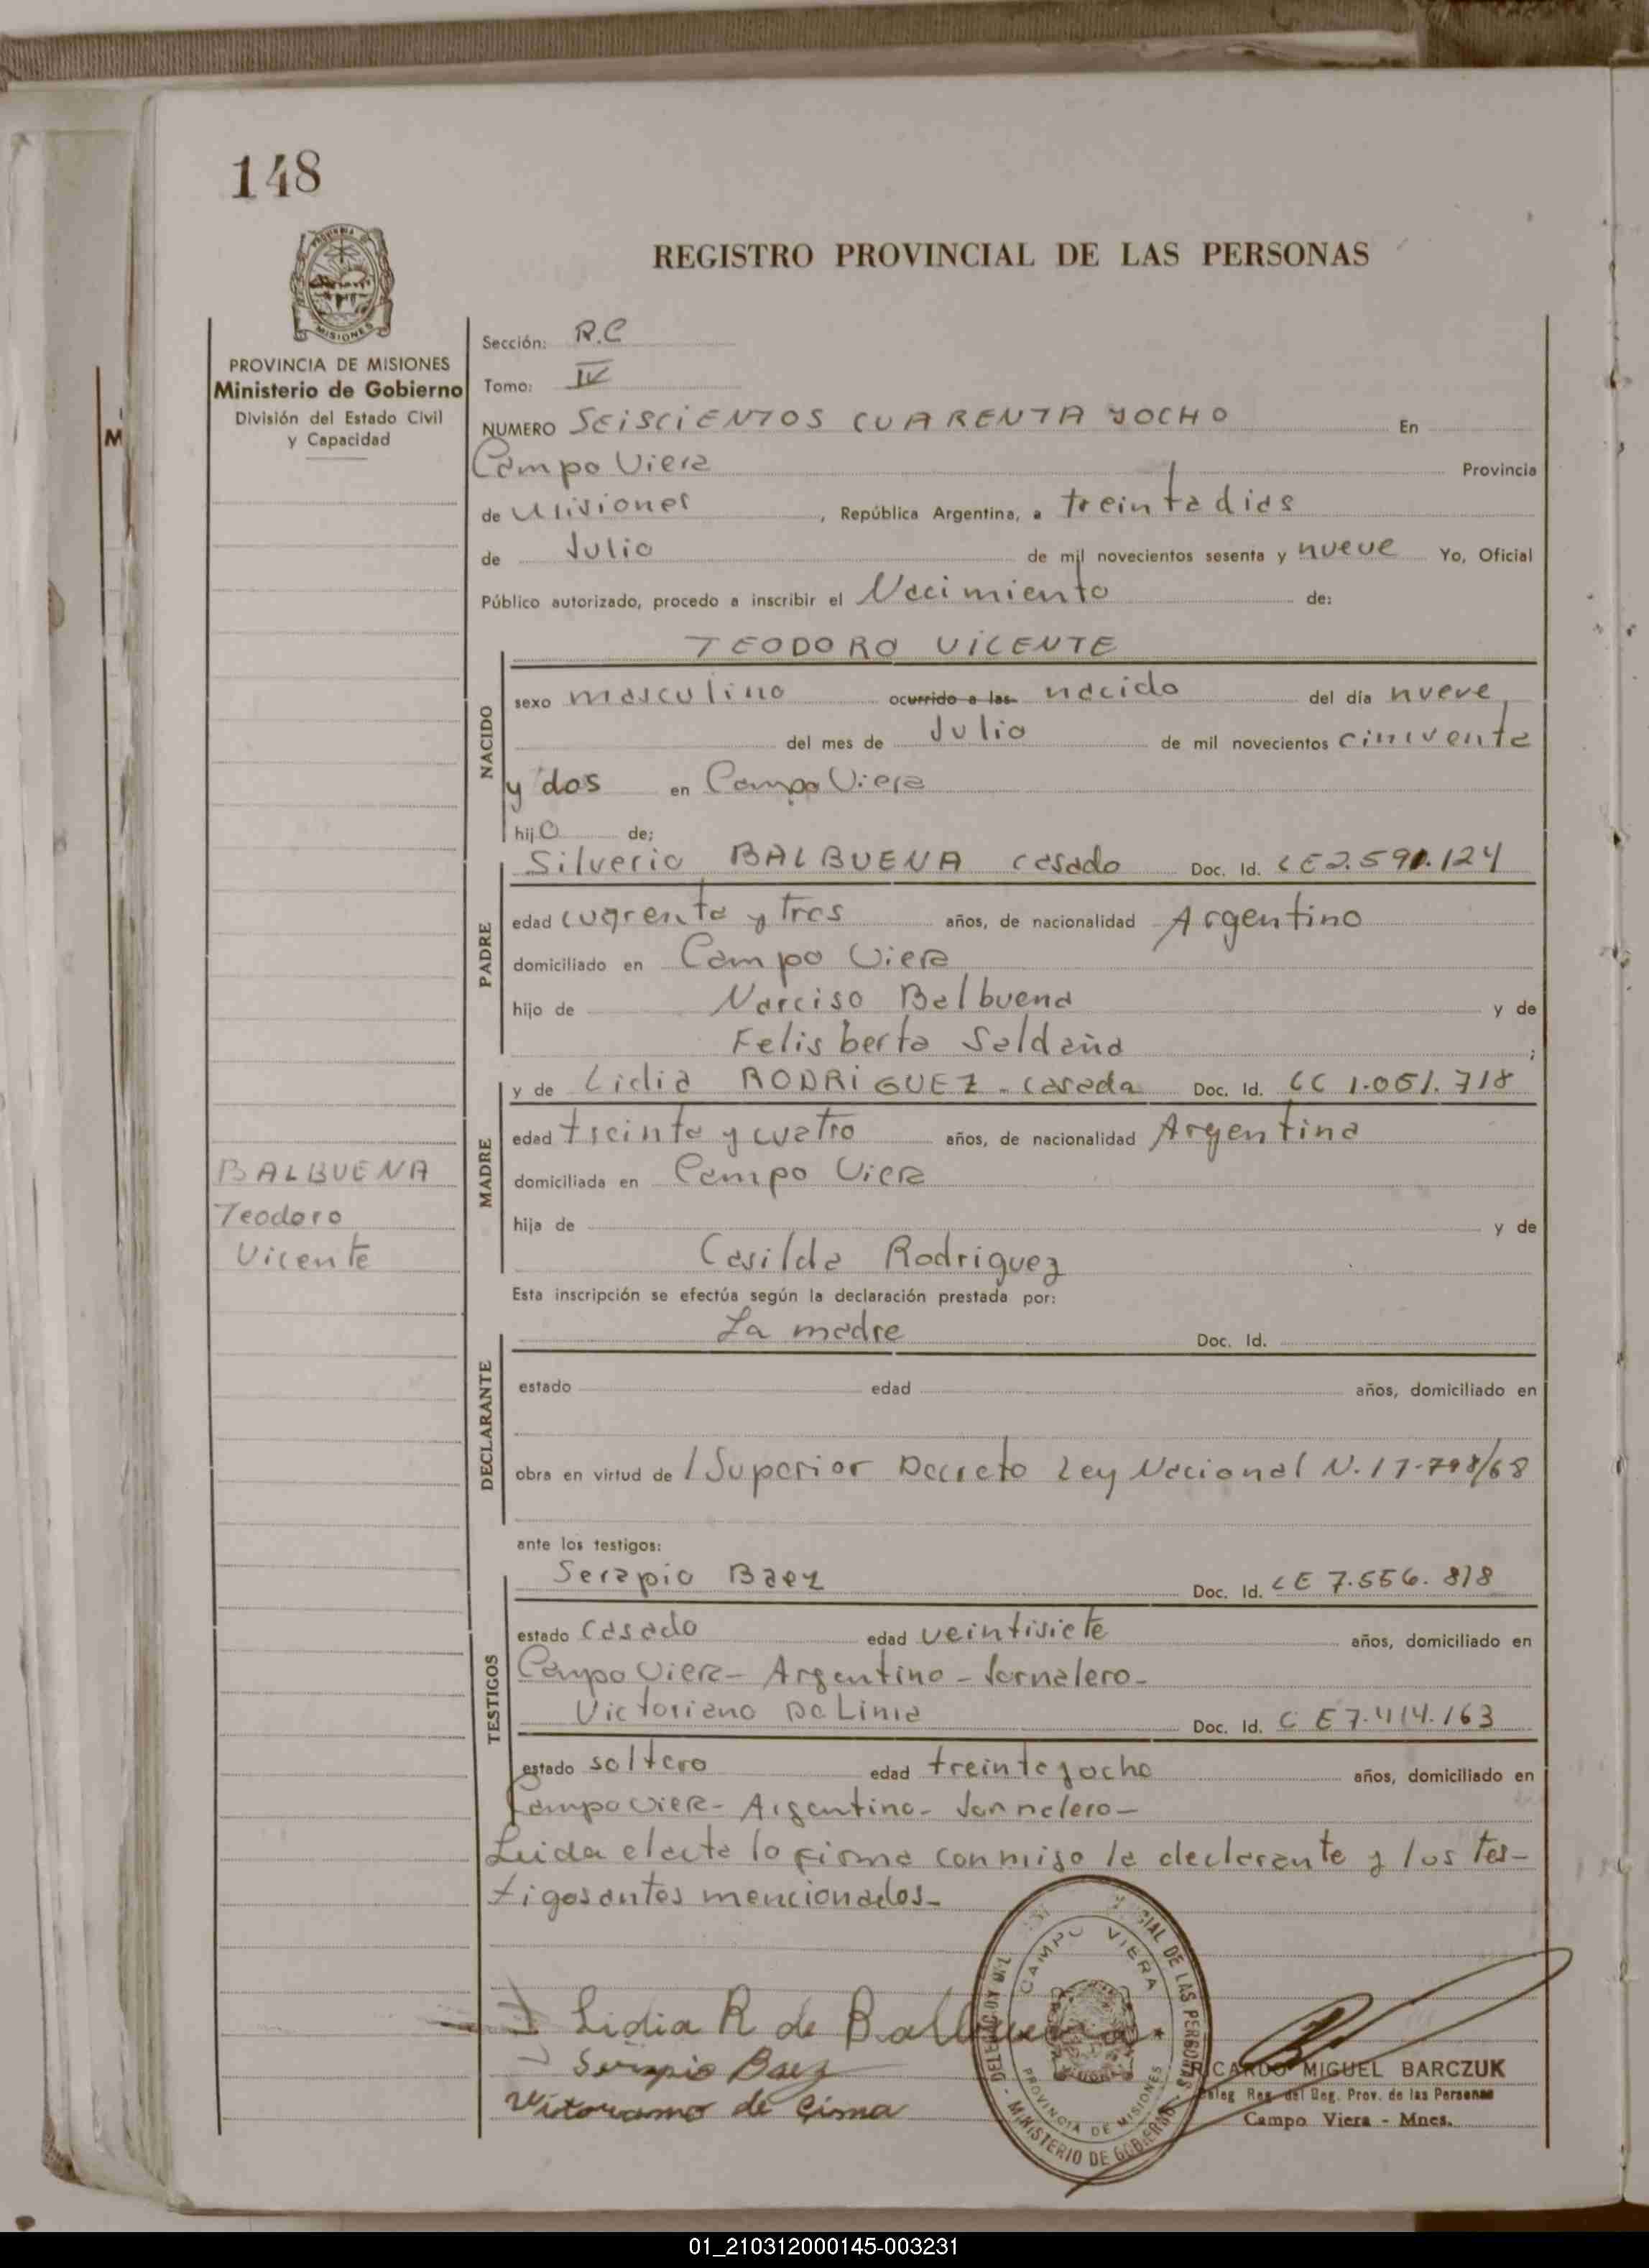 148
REGISTRO PROVINCIAL DE LAS PERSONAS
MISIONES
PROVINCIA DE MISIONES
Ministerio de Gobierno
División del Estado Civil
y Capacidad
Sección: R.C
Tomo: IV
NUMERO SEISCIENTOS CUARENTA YOCHO En
Campo Viera Provincia
de Misiones, República Argentina, a treinta dias
de Julio de mil novecientos sesenta y nueve Yo, Oficial
Público autorizado, procedo a inscribir el Nacimiento de:
TEODORO VICENTE
NACIDO
sexo masculino ocurrido a las nacido del día nueve
del mes de Julio de mil novecientos cincuenta
y dos en Campo Viera
hijo de;
PADRE
Silverio BALBUENA casado Doc. Id. LE 2.591.124
edad cuarenta y tres años, de nacionalidad Argentino
domiciliado en Campo Viera
hijo de Narciso Balbuena y de
Felisberta Saldaña ;
MADRE
y de Lidia RODRIGUEZ - casada Doc. Id. LC 1.051.718
edad treinta y cuatro años, de nacionalidad Argentina
domiciliada en Campo Viera
hija de y de
Casilda Rodriguez
BALBUENA
Teodoro
Vicente
Esta inscripción se efectúa según la declaración prestada por:
DECLARANTE
La madre Doc. Id.
estado edad años, domiciliado en
obra en virtud de / Superior Decreto Ley Nacional N. 17.798/68
ante los testigos:
TESTIGOS
Serapio Baez Doc. Id. LE 7.556.818
estado casado edad veintisiete años, domiciliado en
Campo Viera - Argentino - Jornalero -
Victoriano De Lima Doc. Id. C E 7.414.163
estado soltero edad treintayocho años, domiciliado en
Campo Viera - Argentino - Jornalero -
Leida el acta lo firma conmigo la declarante y los tes-
tigos antes mencionados -
Lidia R de Balbuena
Serapio Baez
Vitoriamo de Lima
CAMPO VIERA
PROVINCIA DE MISIONES
MINISTERIO DE GOBIERNO
DE LAS PERSONAS
RICARDO MIGUEL BARCZUK
Deleg Reg. del Reg. Prov. de las Personas
Campo Viera - Mnes.
01_210312000145-003231